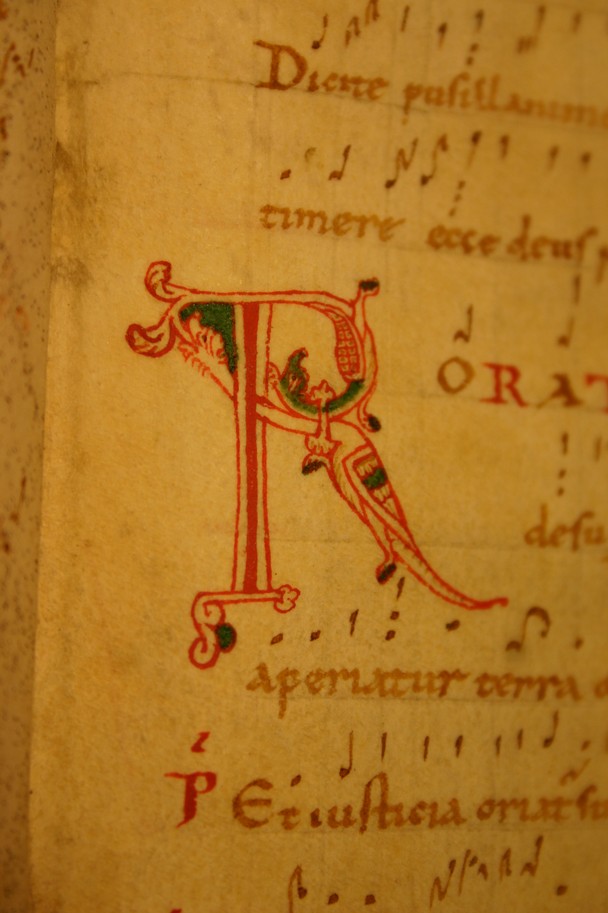 Dicite pusillanimi
timere ecce deus
R ORAT
desu
aperiatur terra
P Et iusticia oriat su